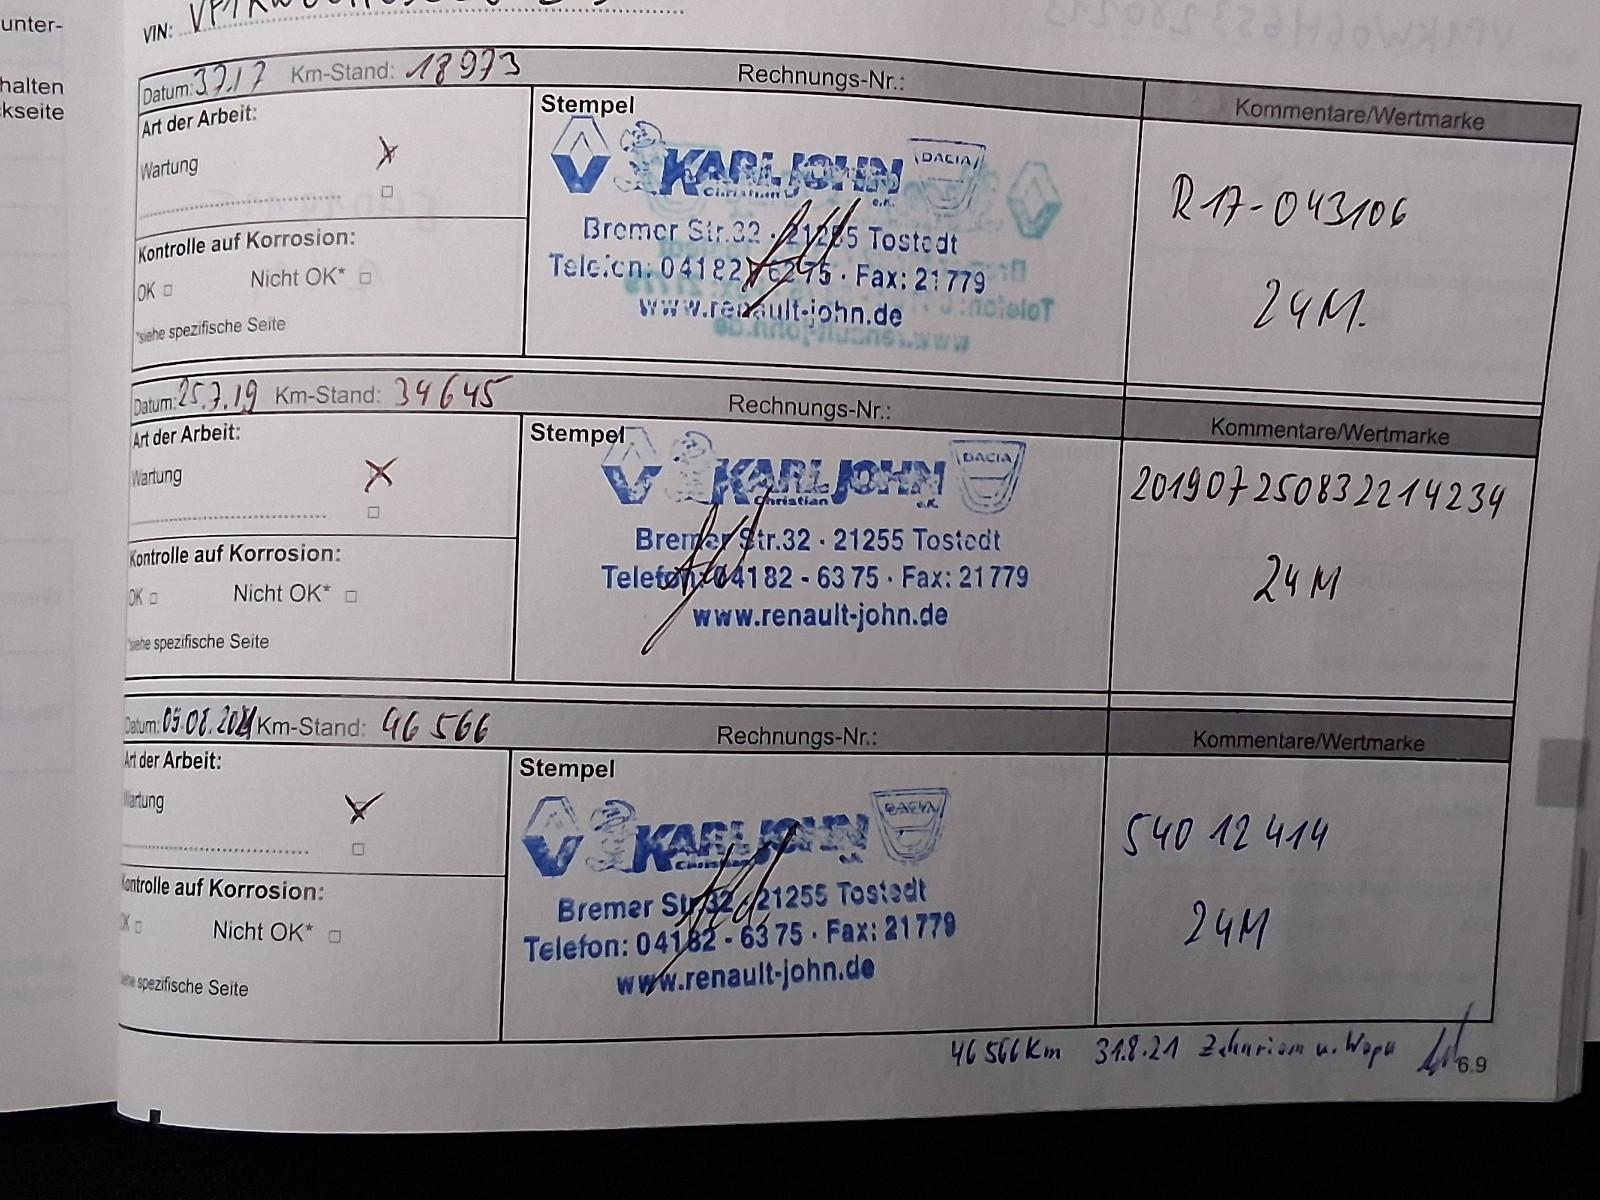 unter-
halten
kseite
VIN:
Datum: 3.7.17 Km-Stand: 18973 Rechnungs-Nr.: Kommentare/Wertmarke
Art der Arbeit:
Wartung
Kontrolle auf Korrosion:
OK □ Nicht OK* □
*siehe spezifische Seite
Stempel
KARL JOHN DACIA
Christian e.K.
Bremer Str.32 · 21255 Tostedt
Telefon: 04182 - 6275 · Fax: 21779
www.renault-john.de
R17-043106
24M.
Datum: 25.7.19 Km-Stand: 34645 Rechnungs-Nr.: Kommentare/Wertmarke
Art der Arbeit:
Wartung
Kontrolle auf Korrosion:
OK □ Nicht OK* □
*siehe spezifische Seite
Stempel
KARL JOHN DACIA
Christian e.K.
Bremer Str.32 · 21255 Tostedt
Telefon: 04182 - 63 75 · Fax: 21 779
www.renault-john.de
20190725083221 4234
24M
Datum: 05.08.2021 Km-Stand: 46 566 Rechnungs-Nr.: Kommentare/Wertmarke
Art der Arbeit:
Wartung
Kontrolle auf Korrosion:
OK □ Nicht OK* □
spezifische Seite
Stempel
KARL JOHN DACIA
Christian e.K.
Bremer Str.32 · 21255 Tostedt
Telefon: 04182 - 63 75 · Fax: 21779
www.renault-john.de
540 12 414
24M
46 566 Km 31.8.21 Zahnriem u. Wapu
6.9